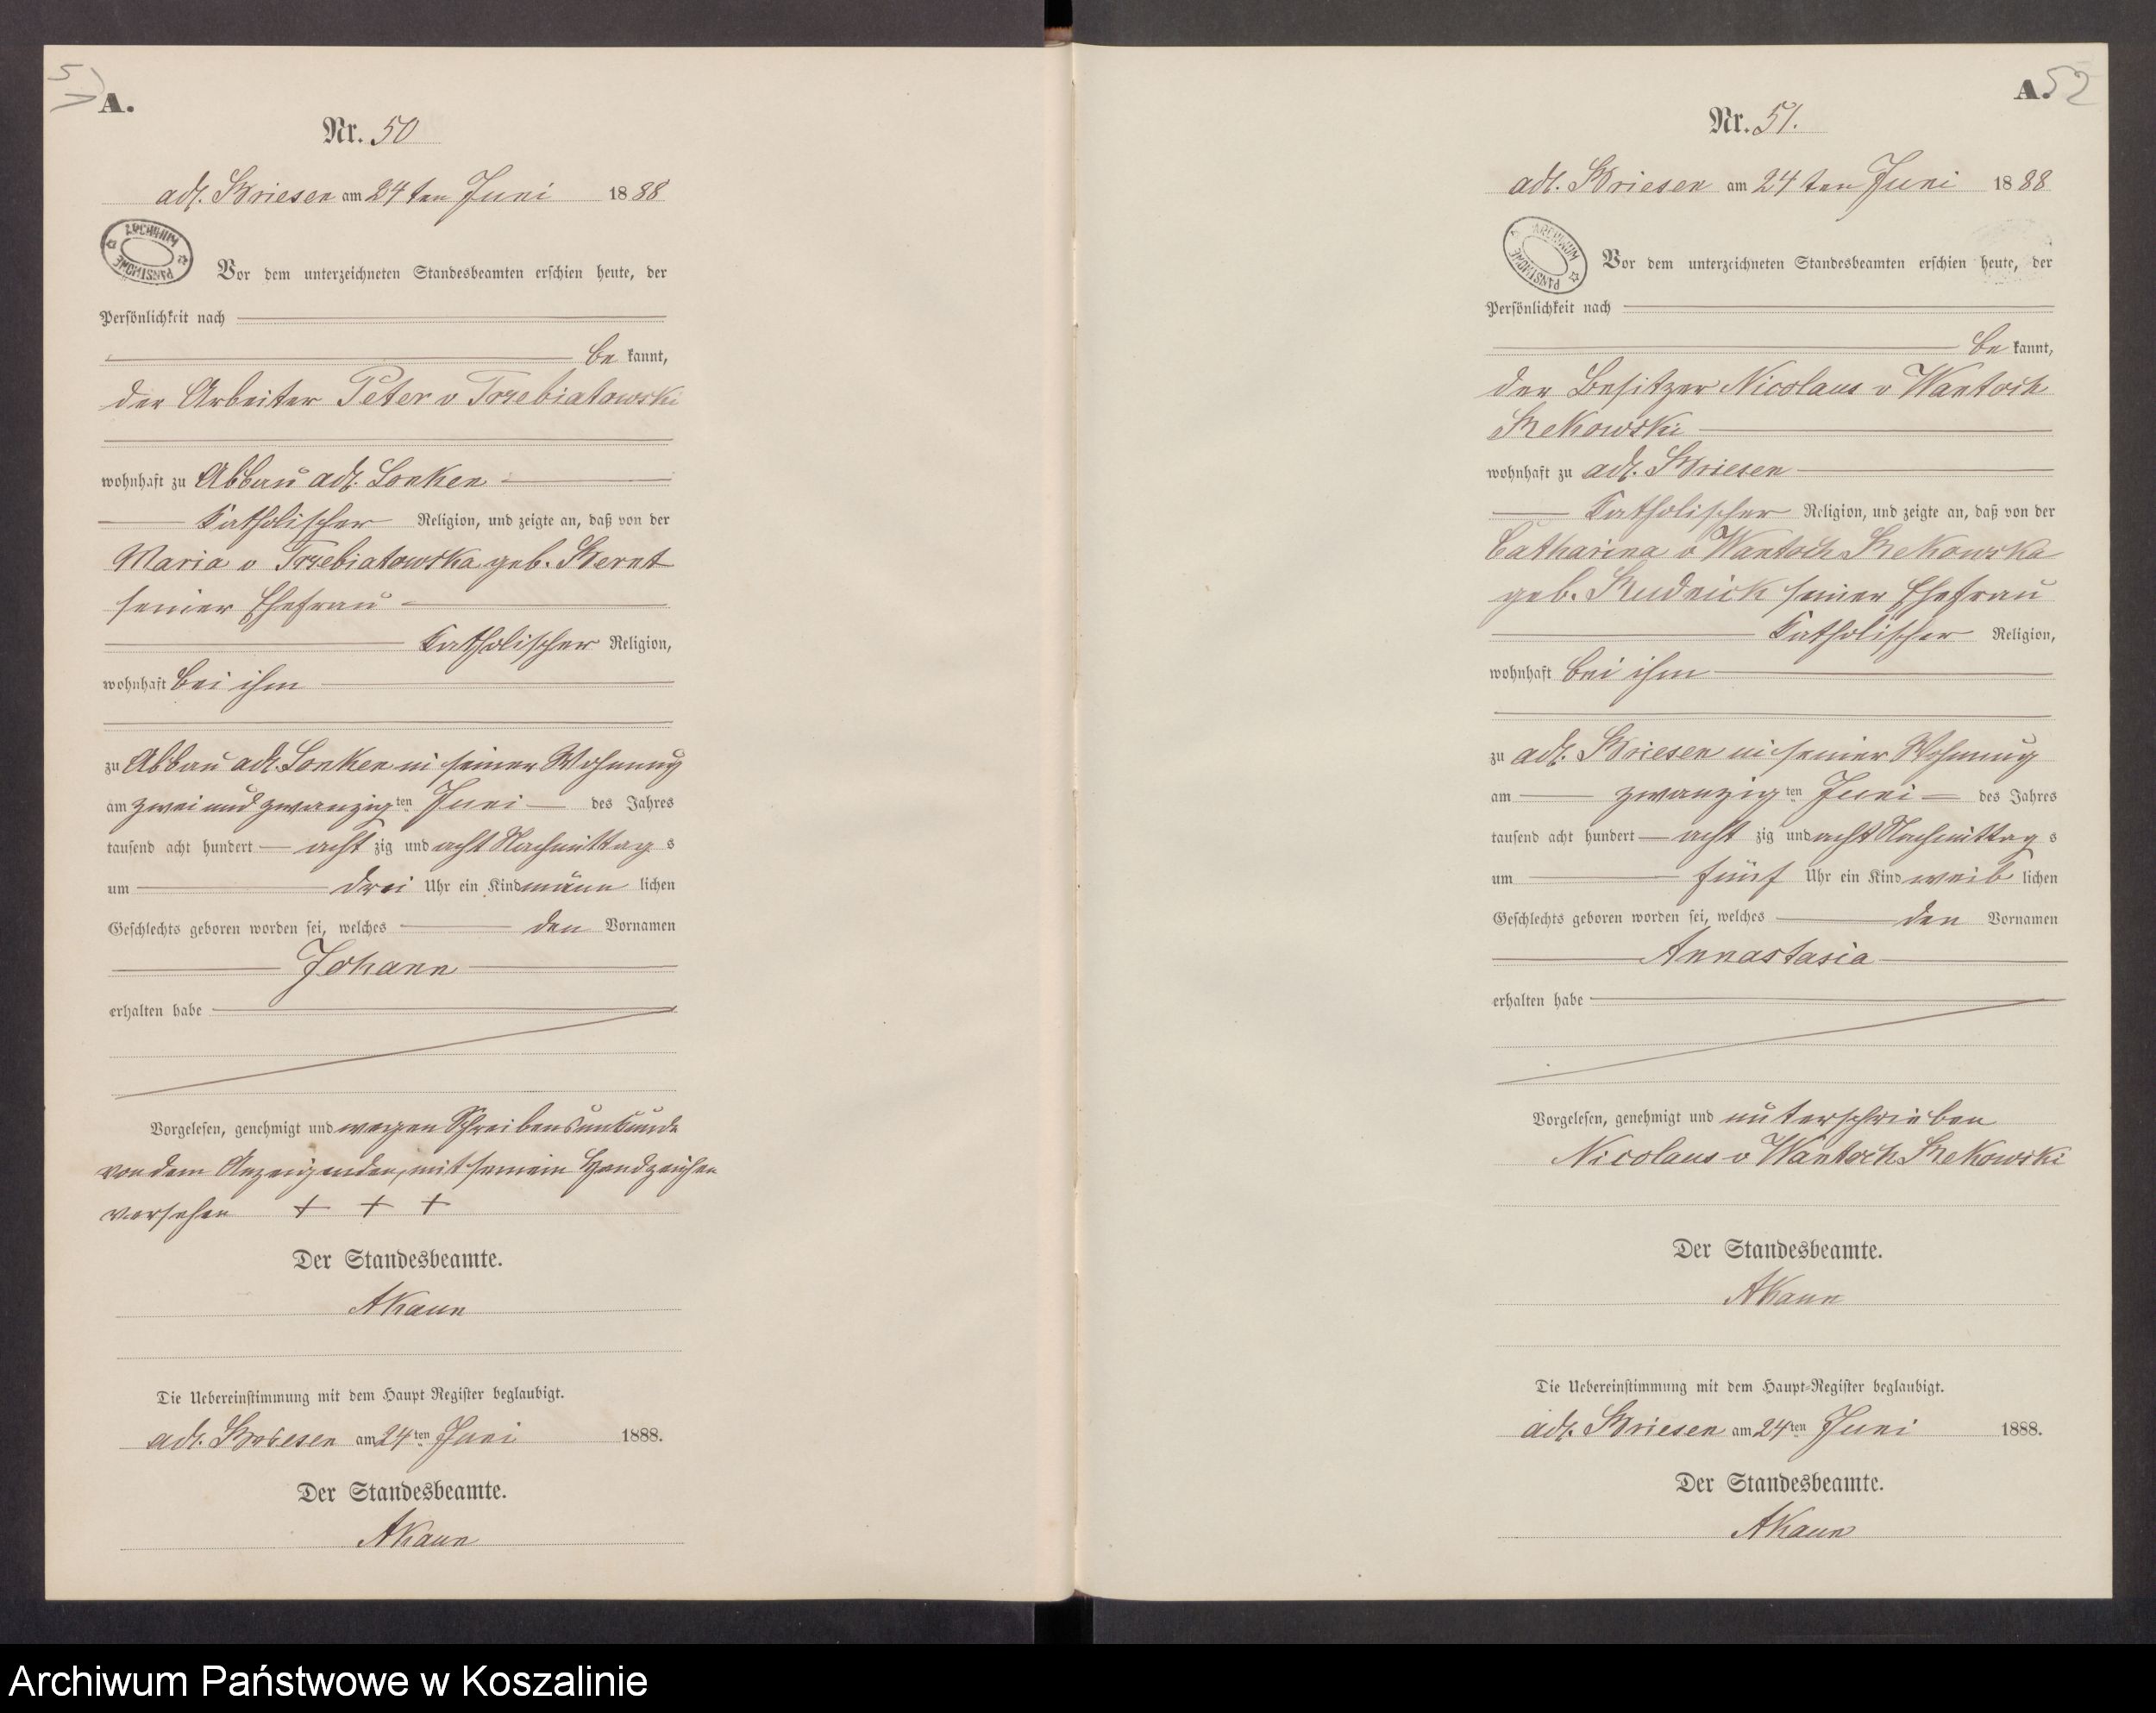 51
A.
Nr. 50
adl. Briesen am 24ten Juni 1888
ARCHIWUM PAŃSTWOWE
Vor dem unterzeichneten Standesbeamten erschien heute, der
Persönlichkeit nach
be kannt,
der Arbeiter Peter v Trzebiatowski
wohnhaft zu Abbau adl. Lonken
Katholischer Religion, und zeigte an, daß von der
Maria v Trzebiatowska geb. Bernt
seiner Ehefrau
Katholischer Religion,
wohnhaft bei ihm
zu Abbau adl. Lonken in seiner Wohnung
am zwei und zwanzig ten Juni des Jahres
tausend acht hundert acht zig und acht Nachmittag s
um drei Uhr ein Kind männ lichen
Geschlechts geboren worden sei, welches den Vornamen
Johann
erhalten habe
Vorgelesen, genehmigt und wegen Schreibensunkunde
von dem Anzeigenden, mit seinem Handzeichen
versehen + + +
Der Standesbeamte.
AKaun
Die Uebereinstimmung mit dem Haupt Register beglaubigt.
adl. Briesen am 24ten Juni 1888.
Der Standesbeamte.
AKaun
A. 52
Nr. 51.
adl. Briesen am 24ten Juni 1888
ARCHIWUM PAŃSTWOWE
Vor dem unterzeichneten Standesbeamten erschien heute, der
Persönlichkeit nach
be kannt,
der Besitzer Nicolaus v Wantoch
Rekowski
wohnhaft zu adl. Briesen
Katholischer Religion, und zeigte an, daß von der
Catharina v Wantoch Rekowska
geb. Rudnick seiner Ehefrau
Katholischer Religion,
wohnhaft bei ihm
zu adl. Briesen in seiner Wohnung
am zwanzig ten Juni des Jahres
tausend acht hundert acht zig und acht Nachmittag s
um fünf Uhr ein Kind weib lichen
Geschlechts geboren worden sei, welches den Vornamen
Annastasia
erhalten habe
Vorgelesen, genehmigt und unterschrieben
Nicolaus v Wantoch Rekowski
Der Standesbeamte.
AKaun
Die Uebereinstimmung mit dem Haupt-Register beglaubigt.
adl. Briesen am 24ten Juni 1888.
Der Standesbeamte.
AKaun
Archiwum Państwowe w Koszalinie